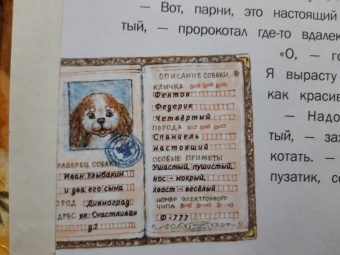 — Вот, парни, это настоящий
тый, — пророкотал где-то вдалек
«О, — го
Я вырасту
как красив
— Надо
тый, — зах
котать. —
пузатик, се
ВЛАДЕЛЕЦ СОБАКИ
Иван Улыбакин
и два его сына
ГОРОД Дивноград
АДРЕС ул. Счастливая
д.1
ОПИСАНИЕ СОБАКИ
КЛИЧКА
Фентон
Федерик
Четвёртый
ПОРОДА
Спаниель
настоящий
ОСОБЫЕ ПРИМЕТЫ
Ушастый, пушистый,
нос - мокрый,
хвост - весёлый
НОМЕР ЭЛЕКТРОННОГО
ЧИПА
Ф-777